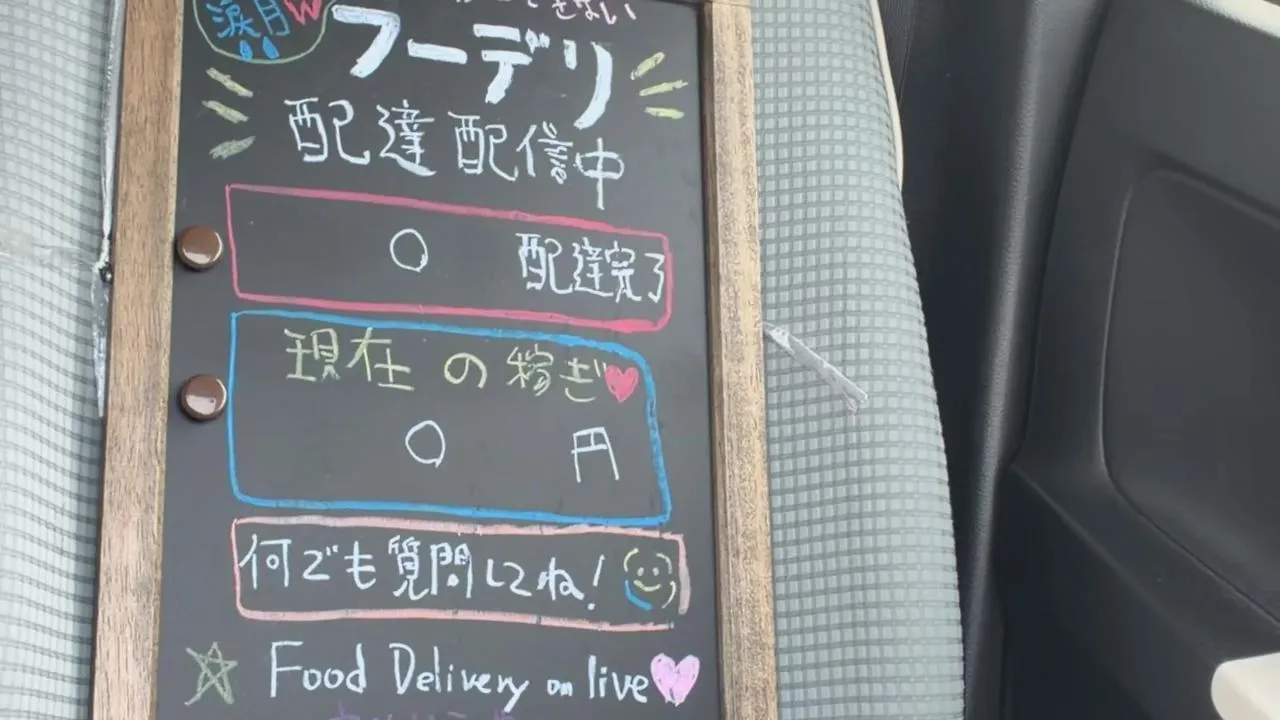 涙月
きない
フーデリ
配達配信中
0 配達完了
現在の稼ぎ
0 円
何でも質問してね!
Food Delivery on live